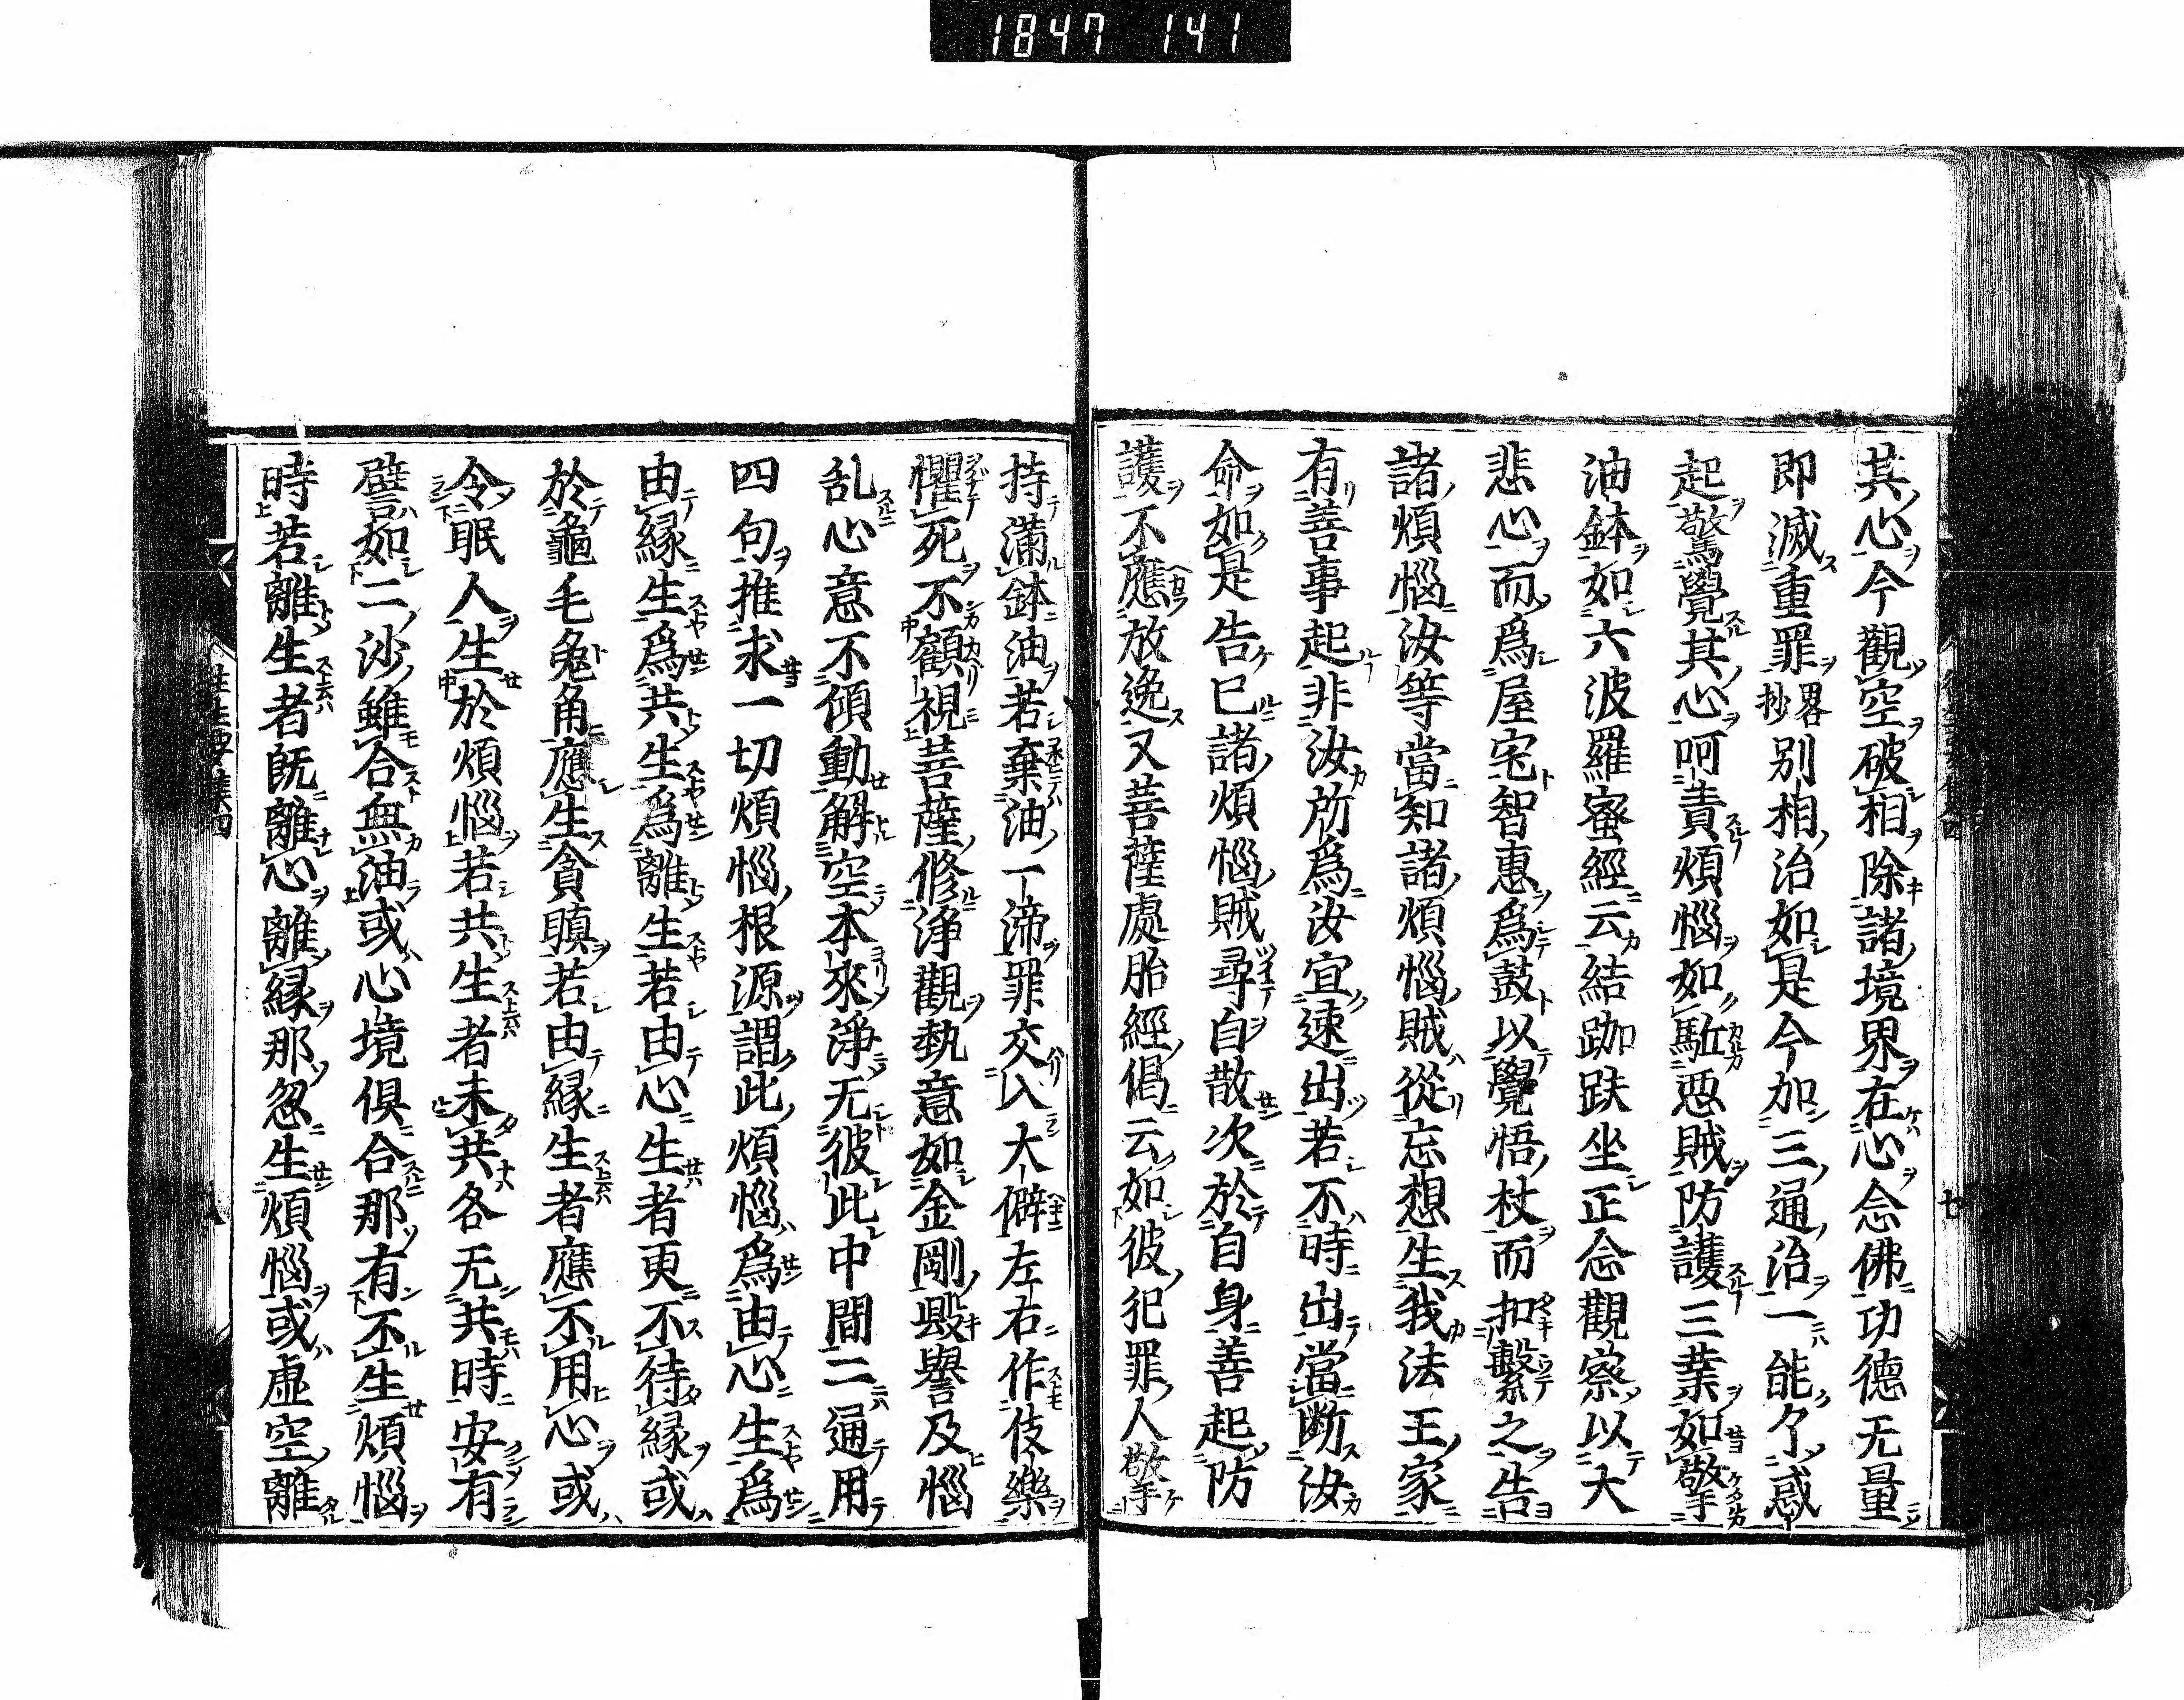 1847 141
其心今觀空破相除諸境界在心念佛功德无量
即滅重罪略抄別相治如是今加三通治一能々惑
起驚覺其心呵責煩惱如駈惡賊防護三業如擎
油鉢如六波羅蜜經云結跏趺坐正念觀察以大
悲心而爲屋宅智惠爲鼓以覺悟杖而扣擊之告
諸煩惱汝等當知諸煩惱賊從忘想生我法王家
有善事起非汝所爲汝宜速出若不時出當断汝
命如是告已諸煩惱賊尋自散次於自身善起防
護不應放逸又菩薩處胎經偈云如彼犯罪人擎
持滿鉢油若棄油一渧罪交入大僻左右作伎樂
懼死不顧視菩薩修淨觀執意如金剛毀譽及惱
乱心意不傾動解空本來淨无彼此中間二通用
四句推求一切煩惱根源謂此煩惱爲由心生爲
由緣生爲共生爲離生若由心生者更不待緣或
於龜毛兔角應生貪瞋若由緣生者應不用心或
令眠人生於煩惱若共生者未共各无共時安有
譬如二沙雖合無油或心境俱合那有不生煩惱
時若離生者既離心離緣那忽生煩惱或虛空離
往生要集四
廿